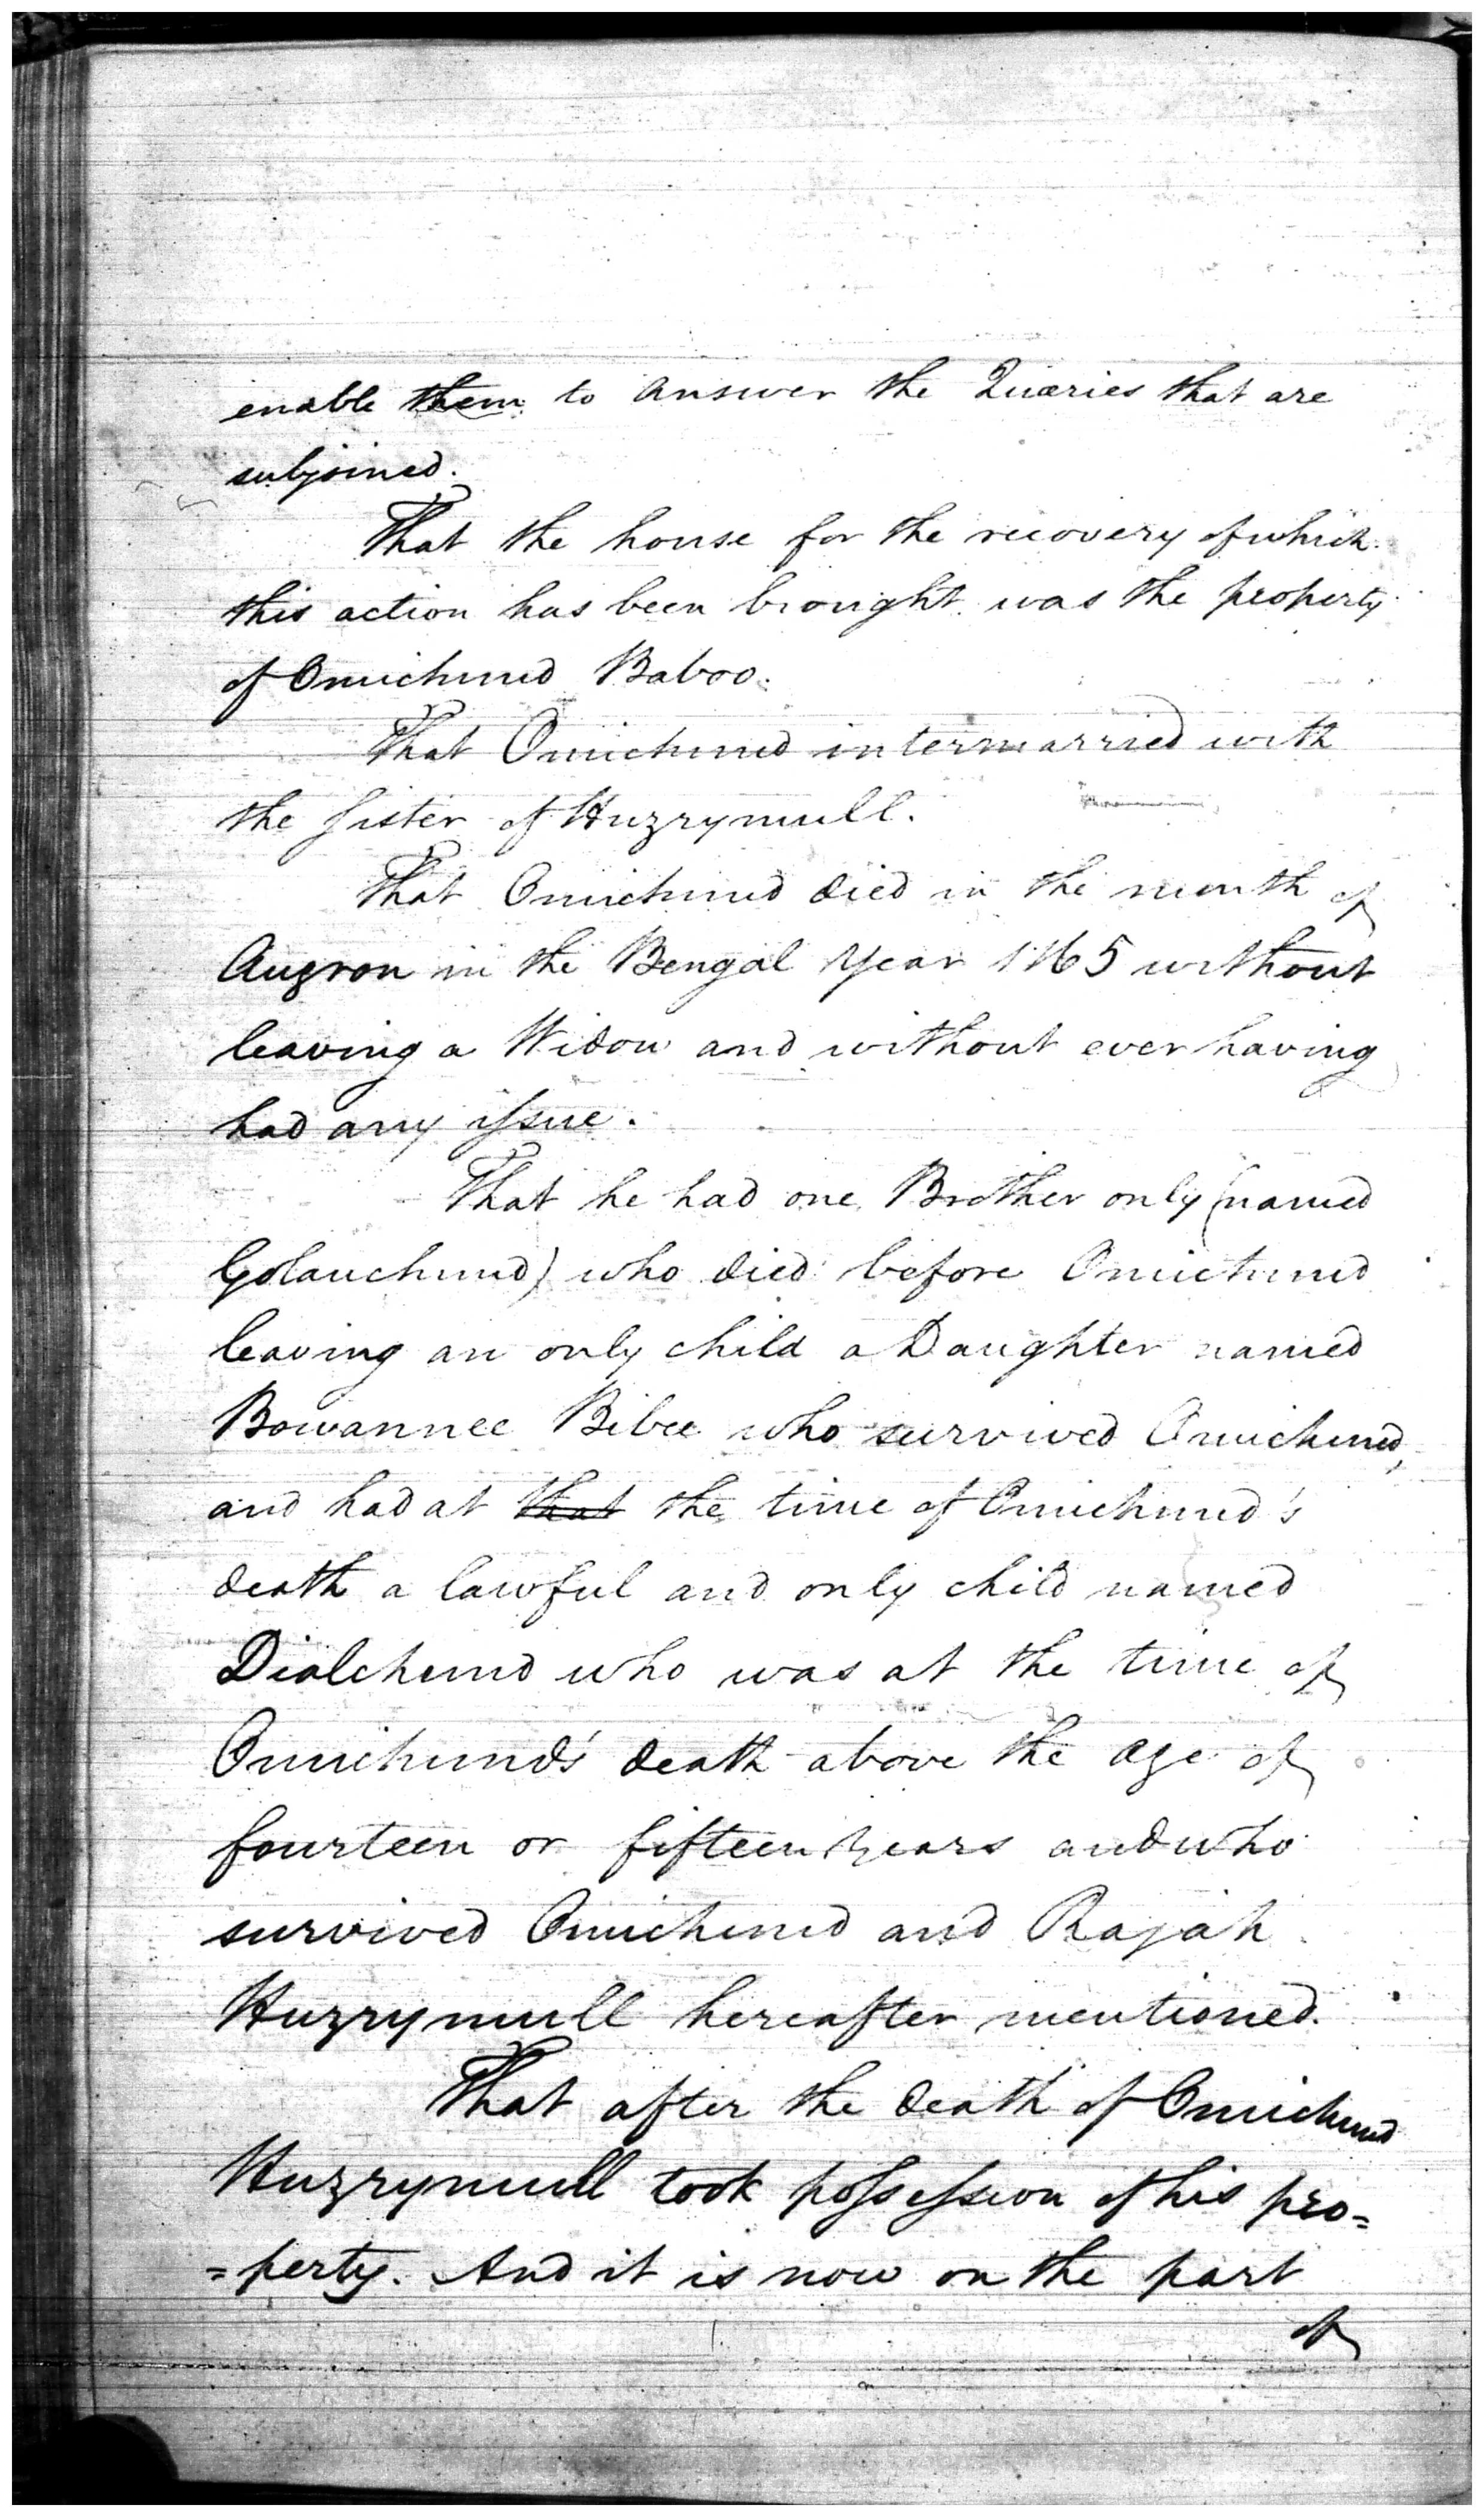 enable them to answer the Quæries that are
subjoined.
That the house for the recovery of which
this action has been brought was the property
of Omichund Baboo.
That Omichund intermarried with
the Sister of Huzrymull.
That Omichund died in the month of
Augron in the Bengal Year 1165 without
leaving a Widow and without ever having
had any issue.
That he had one Brother only (named
Golauchund) who died before Omichund
leaving an only child a Daughter named
Bowannee Bibee who survived Omichund,
and had at that the time of Omichund's
death a lawful and only child named
Dialchund who was at the time of
Omichund's death above the age of
fourteen or fifteen years and who
survived Omichund and Rajah
Huzrymull hereafter mentioned.
That after the death of Omichund
Huzrymull took possession of his pro=
=perty. And it is now on the part
of